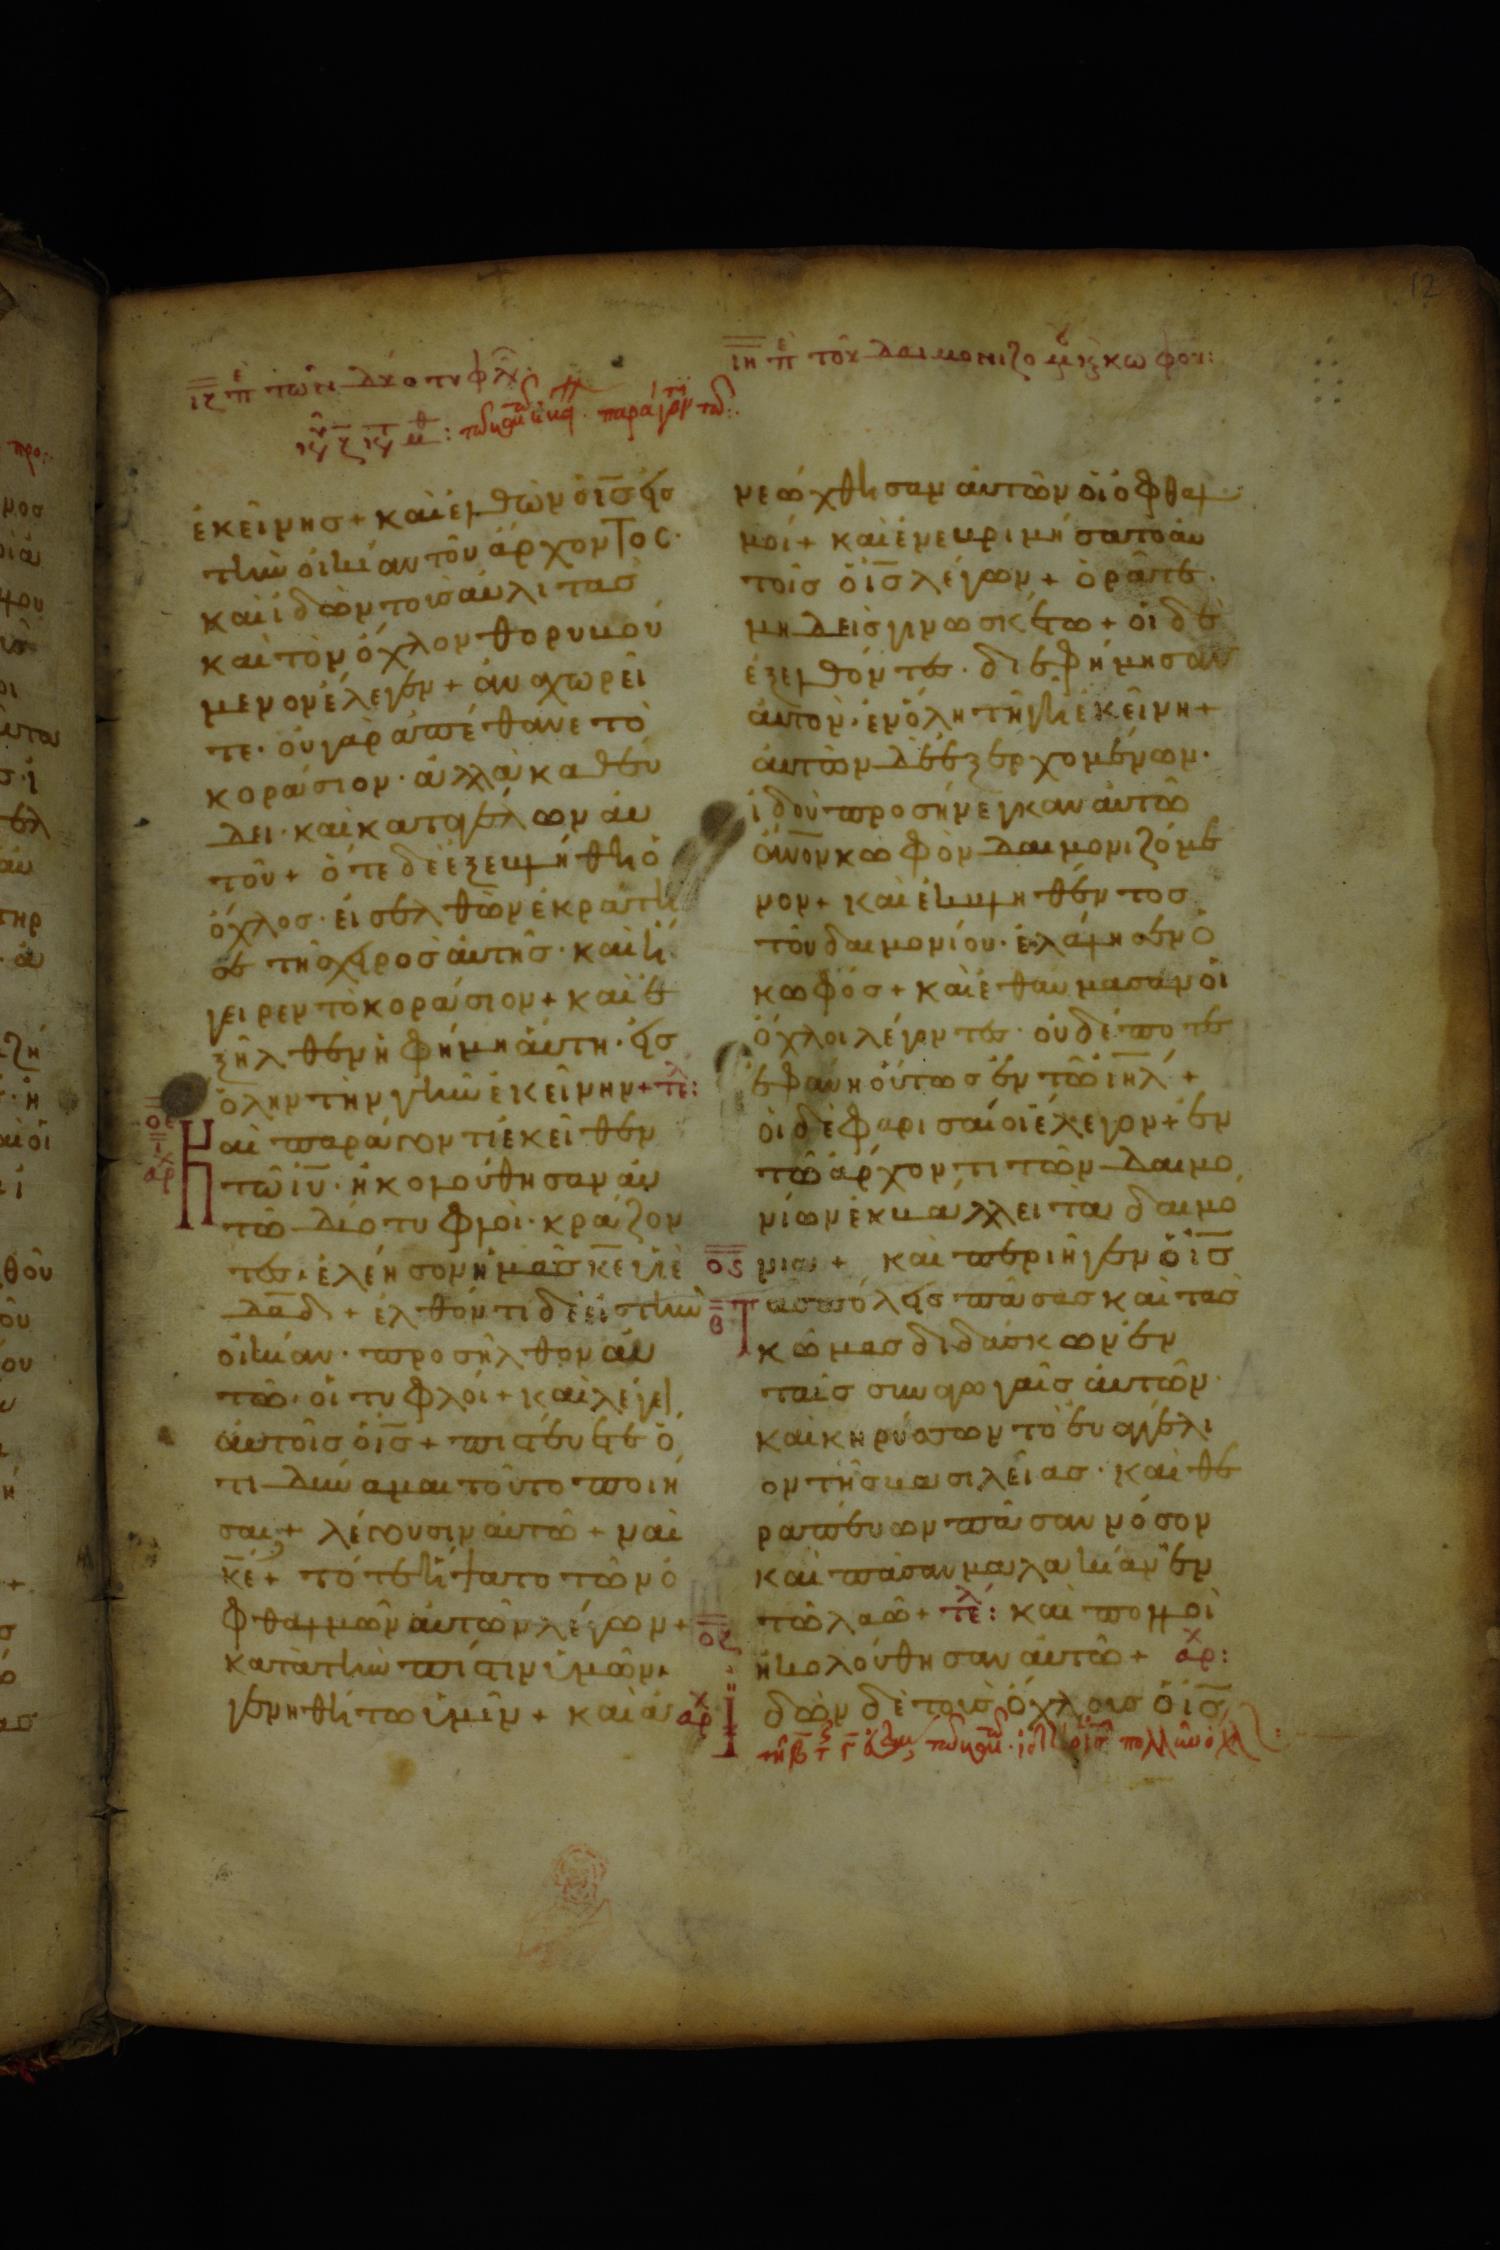 ιζ πε τῶν δύο τυφλ
ιη πε τοῦ δαιμονιζομ κωφου:
ἐκείνησ + καὶ ἐλθὼν ὁ ι̅σ̅ εἰσ
τὴν οἰκίαν τοῦ ἄρχοντος·
καὶ ἰδὼν τοὺσ αὐλιτὰσ
καὶ τὸν ὄχλον θορυβού
μενον ἔλεγεν + ἀναχωρεῖ
τε· οὐ γὰρ ἀπέθανε τὸ
κοράσιον· ἀλλὰ καθεύ
δει· καὶ κατεγέλων αὐ
τοῦ + ὅτε δὲ ἐξεβλήθη ὁ
ὄχλοσ· εἰσελθὼν ἐκράτη
σε τῆσ χειρὸσ αὐτῆσ· καὶ ἠ
γειρεν τὸ κοράσιον + καὶ ἐ
ξῆλθεν ἡ φήμη ἄυτη· εἰσ
ὅλην τὴν γῆν ἐκείνην + τε λ:
οε
ι
αρχ
Καὶ παράγοντι ἐκεῖθεν
τῶ ι̅υ̅· ἠκολούθησαν αὐ
τῶ δύο τυφλοὶ· κράζον
τεσ· ἐλέησον ἡμᾶσ κ̅ε̅ υἱὲ
δα̅δ̅ + ἐλθόντι δὲ εἰσ τὴν
οἰκίαν· προσῆλθον αὐ
τῶ· οἱ τυφλοί + καὶ λέγει
αὐτοῖσ ὁ ι̅σ̅ + πιστεύετε ὅ
τι δύναμαι τοῦτο ποιῆ
σαι; + λέγουσιν αὐτῶ + ναὶ
κ̅ε̅ + τότε ἥψατο τῶν ὀ
φθαλμῶν αὐτῶν λέγων +
κατὰ τὴν πίστιν ὑμῶν·
γενηθήτω ὑμῖν + καὶ ἀ
νεώχθησαν αὐτῶν οἱ ὀφθαλ
μοί + καὶ ἐνεβριμήσατο αὐ
τοῖσ ὁ ι̅σ̅ λέγων + ὁρᾶτε·
μηδεὶσ γινωσκέτω + οἱ δὲ
ἐξελθόντεσ· διεφήμησαν
αὐτὸν· ἐν ὅλη τῆ γῆ ἐκείνη +
αὐτῶν δὲ ἐξερχομένων·
ἰδοὺ προσήνεγκαν αὐτῶ
ἄν̅ο̅ν κωφὸν δαιμονιζόμε
νον + καὶ ἐκβληθέντοσ
τοῦ δαιμονίου· ἐλάλησεν ὁ
κωφόσ + καὶ ἐθαύμασαν οἱ
ὄχλοι λέγοντεσ· οὐδέποτε
ἐφάνη οὕτωσ ἐν τῶ ι̅η̅λ̅ +
οἱ δὲ φαρισαίοι ἔλεγον + ἐν
τῶ ἄρχοντι τῶν δαιμο
νίων ἐκβάλλει τὰ δαιμό
οϛ
νια + καὶ περιῆγεν ὁ ι̅σ̅
β
Τὰσ πόλεισ πάσασ καὶ τὰσ
κώμασ διδάσκων ἐν
ταῖσ συναγωγαῖσ αὐτῶν·
καὶ κηρύσσων τὸ εὐαγγέλι
ον τῆσ βασιλείασ· καὶ θε
ραπεύων πᾶσαν νόσον
καὶ πᾶσαν μαλακίαν ἐν
οζ
τῶ λαῶ + τε λ: καὶ πολλοὶ
ἠκολούθησαν αὐτῶ + αρχ:
αρχ
Ἰδὼν δὲ τοὺσ ὄχλουσ ὁ ι̅σ̅